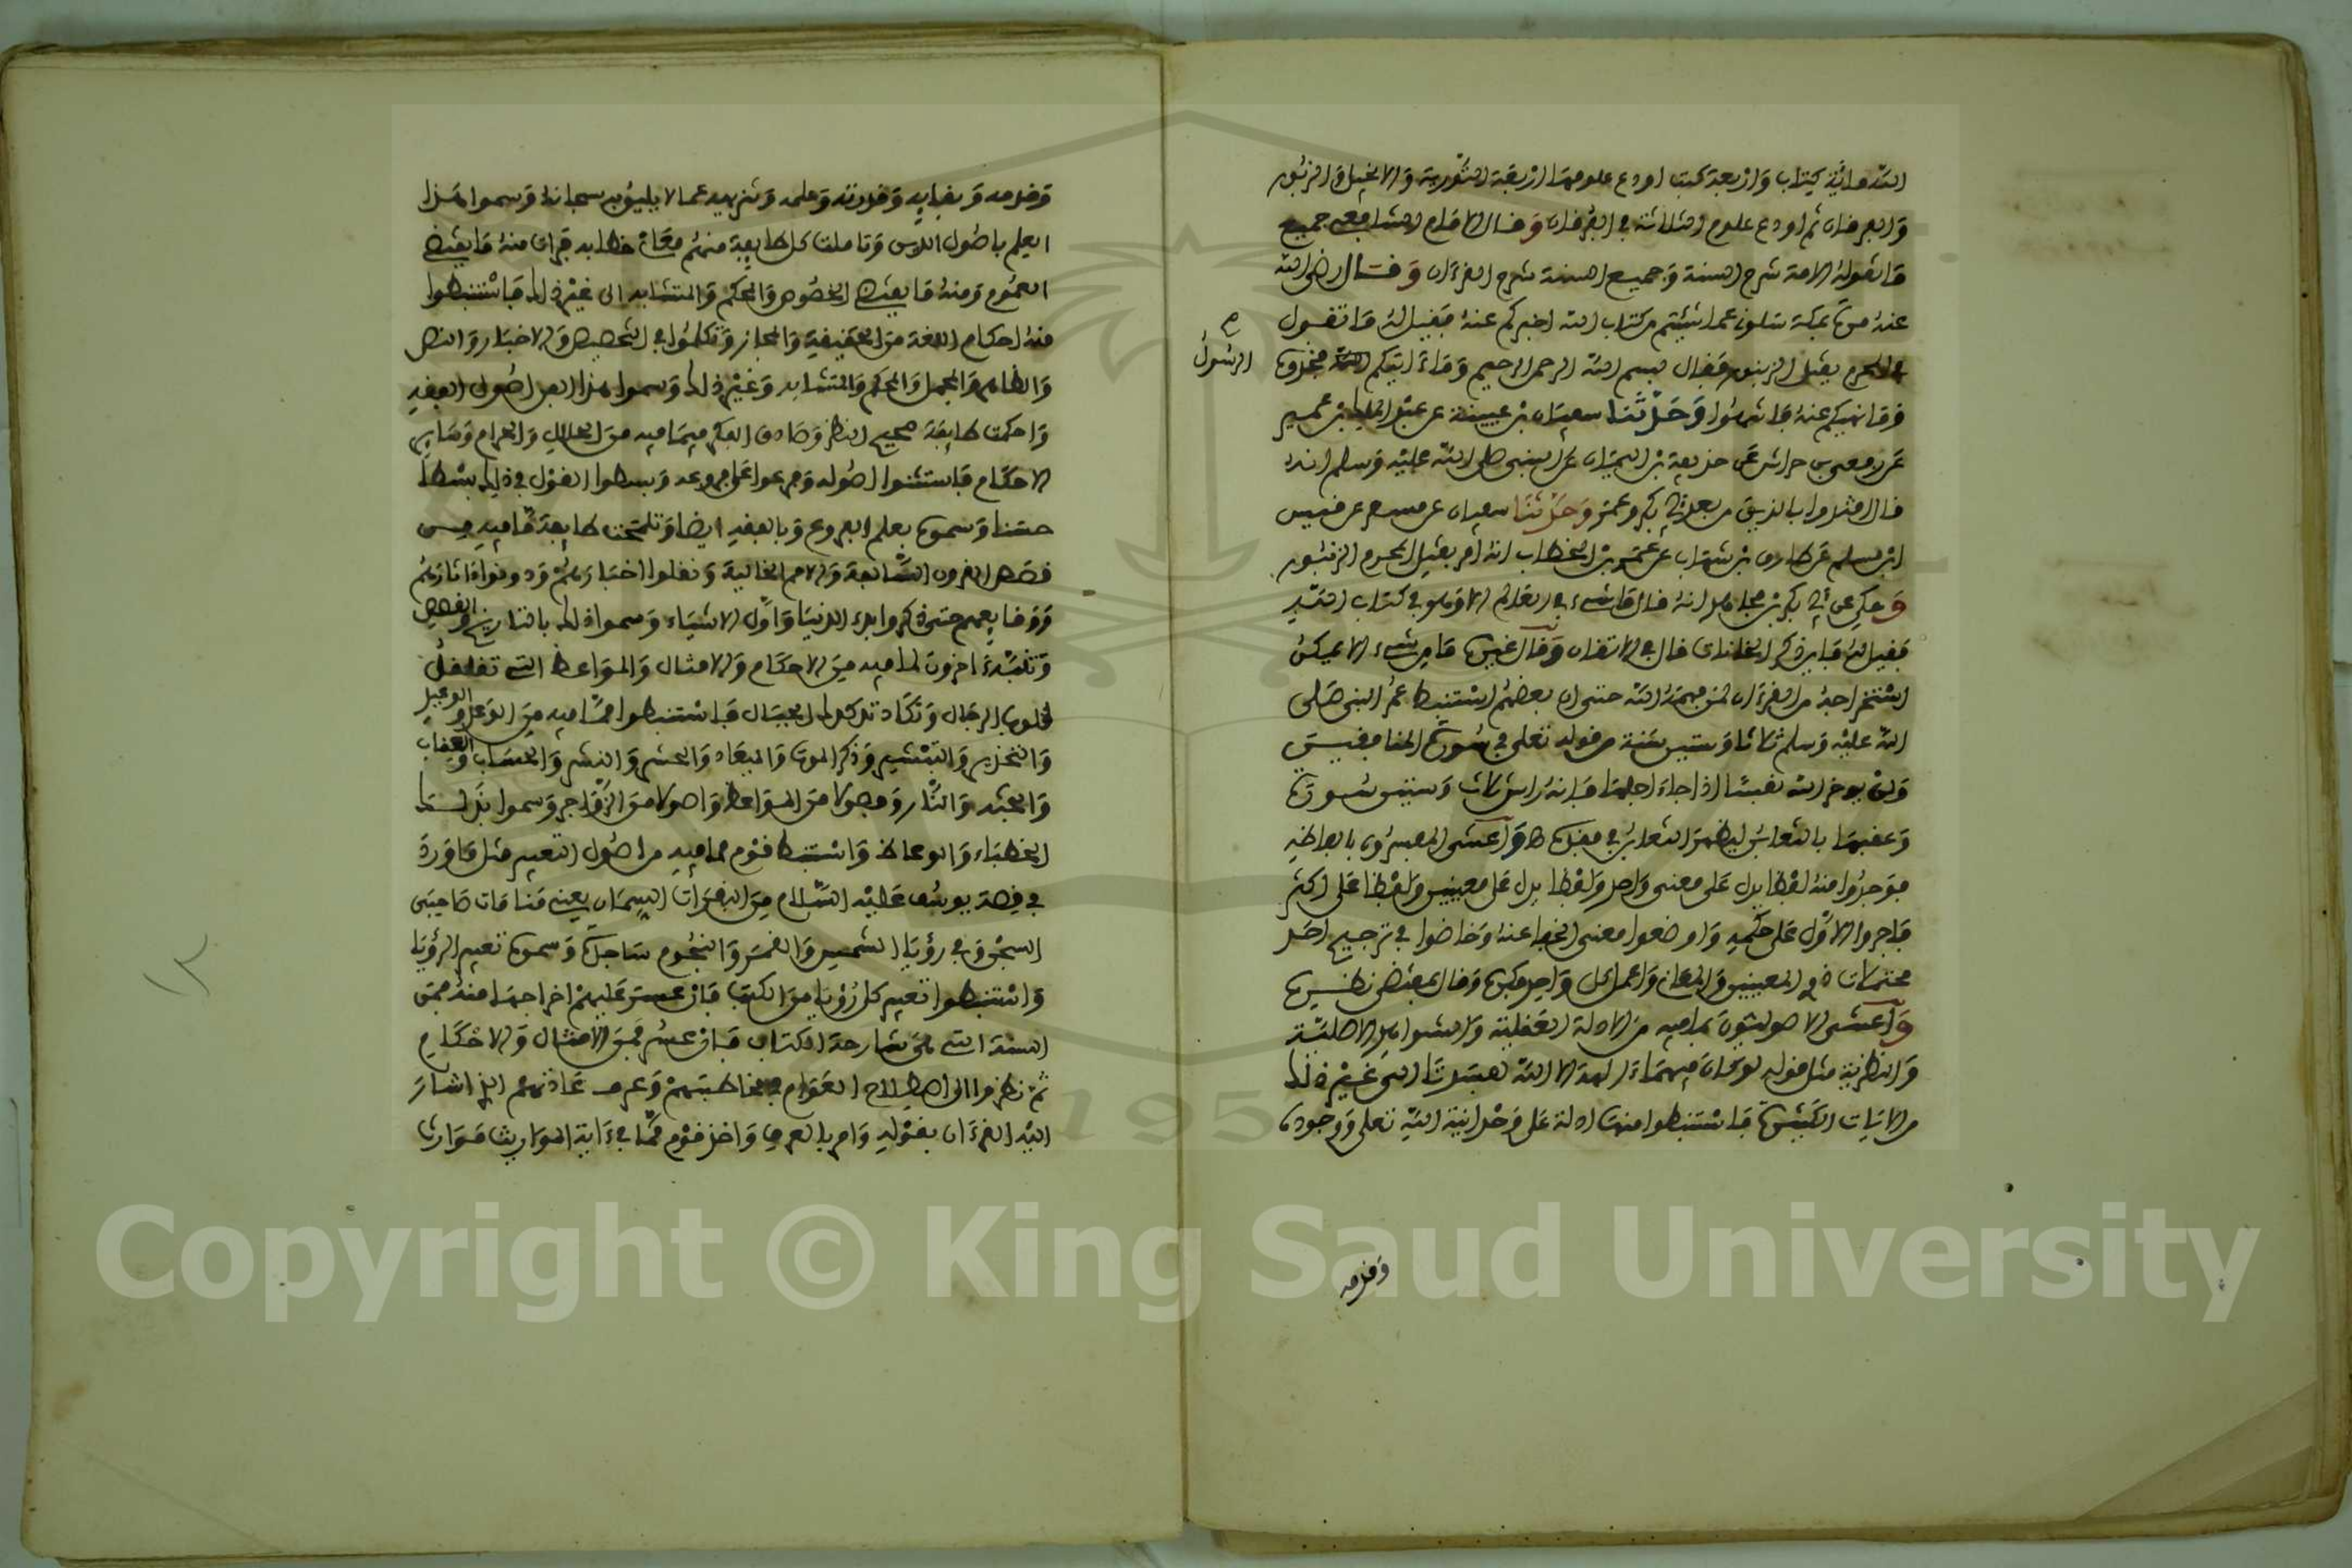 الله مائة كتاب واربعة كتب اودع علومها اربعة التورية والانجيل والزبور
والفرقان ثم اودع علوم الثلاثة في الفرقان وقال الامام الشافعي جميع
ما تقوله الامة شرح السنة وجميع السنة شرح القرءان وقال رضي الله
عنه مرة بمكة سلوني عما شئتم من كتاب الله اخبركم عنه فقيل له ما تقول
في المحرم يقتل الزنبور فقال بسم الله الرحمن الرحيم وما ءاتيكم فخذوه
الرسول
وما نهيكم عنه فانتهوا وحدثنا سفيان بن عيينة عن عبد الملك بن عمير
عن ربعي بن حراش عن حذيفة بن اليمان عن النبي صلى الله عليه وسلم انه
قال اقتدوا بالذين من بعدي ابي بكر وعمر وحدثنا سفيان عن مسعر عن قيس
ابن مسلم عن طارق بن شهاب عن عمر بن الخطاب انه امر بقتل المحرم الزنبور
وحكي عن ابي بكر بن مجاهد انه قال ما شيء في العالم الا وهو في كتاب الله
فقيل له فاين ذكر الخانات قال في الاتقان وقال غيره ما من شيء الا يمكن
استخراجه من القرءان لمن فهمه الله حتى ان بعضهم استنبط عمر النبي صلى
الله عليه وسلم ثلاثا وستين سنة من قوله تعلى في سورة المنافقين
ولن يوخر الله نفسا اذا جاء اجلها فانه راس ثلاث وستين سورة
وعقبها بالتغابن ليظهر التغابن في فقده واعتنى المفسرون بالفاظه
فوجدوا منه لفظا يدل على معنى واحد ولفظا يدل على معنيين ولفظا على اكثر
فاجروا الاول على حكمه واوضحوا معنى الخفي عنه وخاضوا في ترجيح احد
محتملات ذي المعنيين والمعاني واعمل كل واحد فكره وقال بمقتضى نظره
واعتنى الاصوليون بما فيه من الادلة العقلية والشواهد الاصلية
والنظرية مثل قوله لو كان فيهما ءالهة الا الله لفسدتا الى غير ذلك
من الايات الكثيرة فاستنبطوا منها ادلة على وحدانية الله تعلى ووجوده
وقدمه
وقدمه وبقايه وقدرته وعلمه وتنزيهه عما لا يليق به سبحانه وسموا هذا
العلم باصول الدين وتاملت كل طايفة منهم معاني خطابه فرات منه ما يقتضي
العموم ومنه ما يقتضي الخصوص والمحكم والمتشابه الى غير ذلك فاستنبطوا
منه احكام اللغة من الحقيقة والمجاز وتكلموا في التخصيص والاخبار والنص
والظاهر والمجمل والمحكم والمتشابه وغير ذلك وسموا هذا الفن اصول الفقه
واحكمت طايفة صحيح النظر وصادق الفكر فيما فيه من الحلال والحرام وساير
الاحكام فاسسوا اصوله وفرعوا فروعه وبسطوا القول في ذلك بسطا
حسنا وسموه بعلم الفروع وبالفقه ايضا وتلمحت طايفة ما فيه من
قصص القرون السالفة والامم الخالية ونقلوا اخبارهم ودونوا ءاثارهم
ووقايعهم حتى ذكروا بدء الدنيا واول الاشياء وسموا ذلك بالتاريخ والقصص
وتنبه ءاخرون لما فيه من الاحكام والامثال والمواعظ التي تقلقل
قلوب الرجال وتكاد تدكدك الجبال فاستنبطوا مما فيه من الوعد والوعيد
والتحذير والتبشير وذكر الموت والميعاد والحشر والنشر والحساب والعقاب
والجنة والنار وفصولا من المواعظ واصولا من الزواجر وسموا بذلك
الخطباء والوعاظ واستنبط قوم مما فيه من اصول التعبير مثل ما ورد
في قصة يوسف عليه السلام من البقرات السمان يعني منامات صاحبي
السجن وفي رؤيا الشمس والقمر والنجوم ساجدة وسموه تعبير الرؤيا
واستنبطوا تعبير كل رؤيا من الكتاب فان عسر عليهم اخراجها منه فمن
السنة التي هي شارحة الكتاب فان عسر فمن الامثال والاحكام
ثم نظروا الى اصطلاح العوام في مخاطبتهم وعرف عادتهم الذي اشار
اليه القرءان بقوله وامر بالعرف واخذ قوم مما في ءاية المواريث مواريث
١٢
Copyright © King Saud University
195